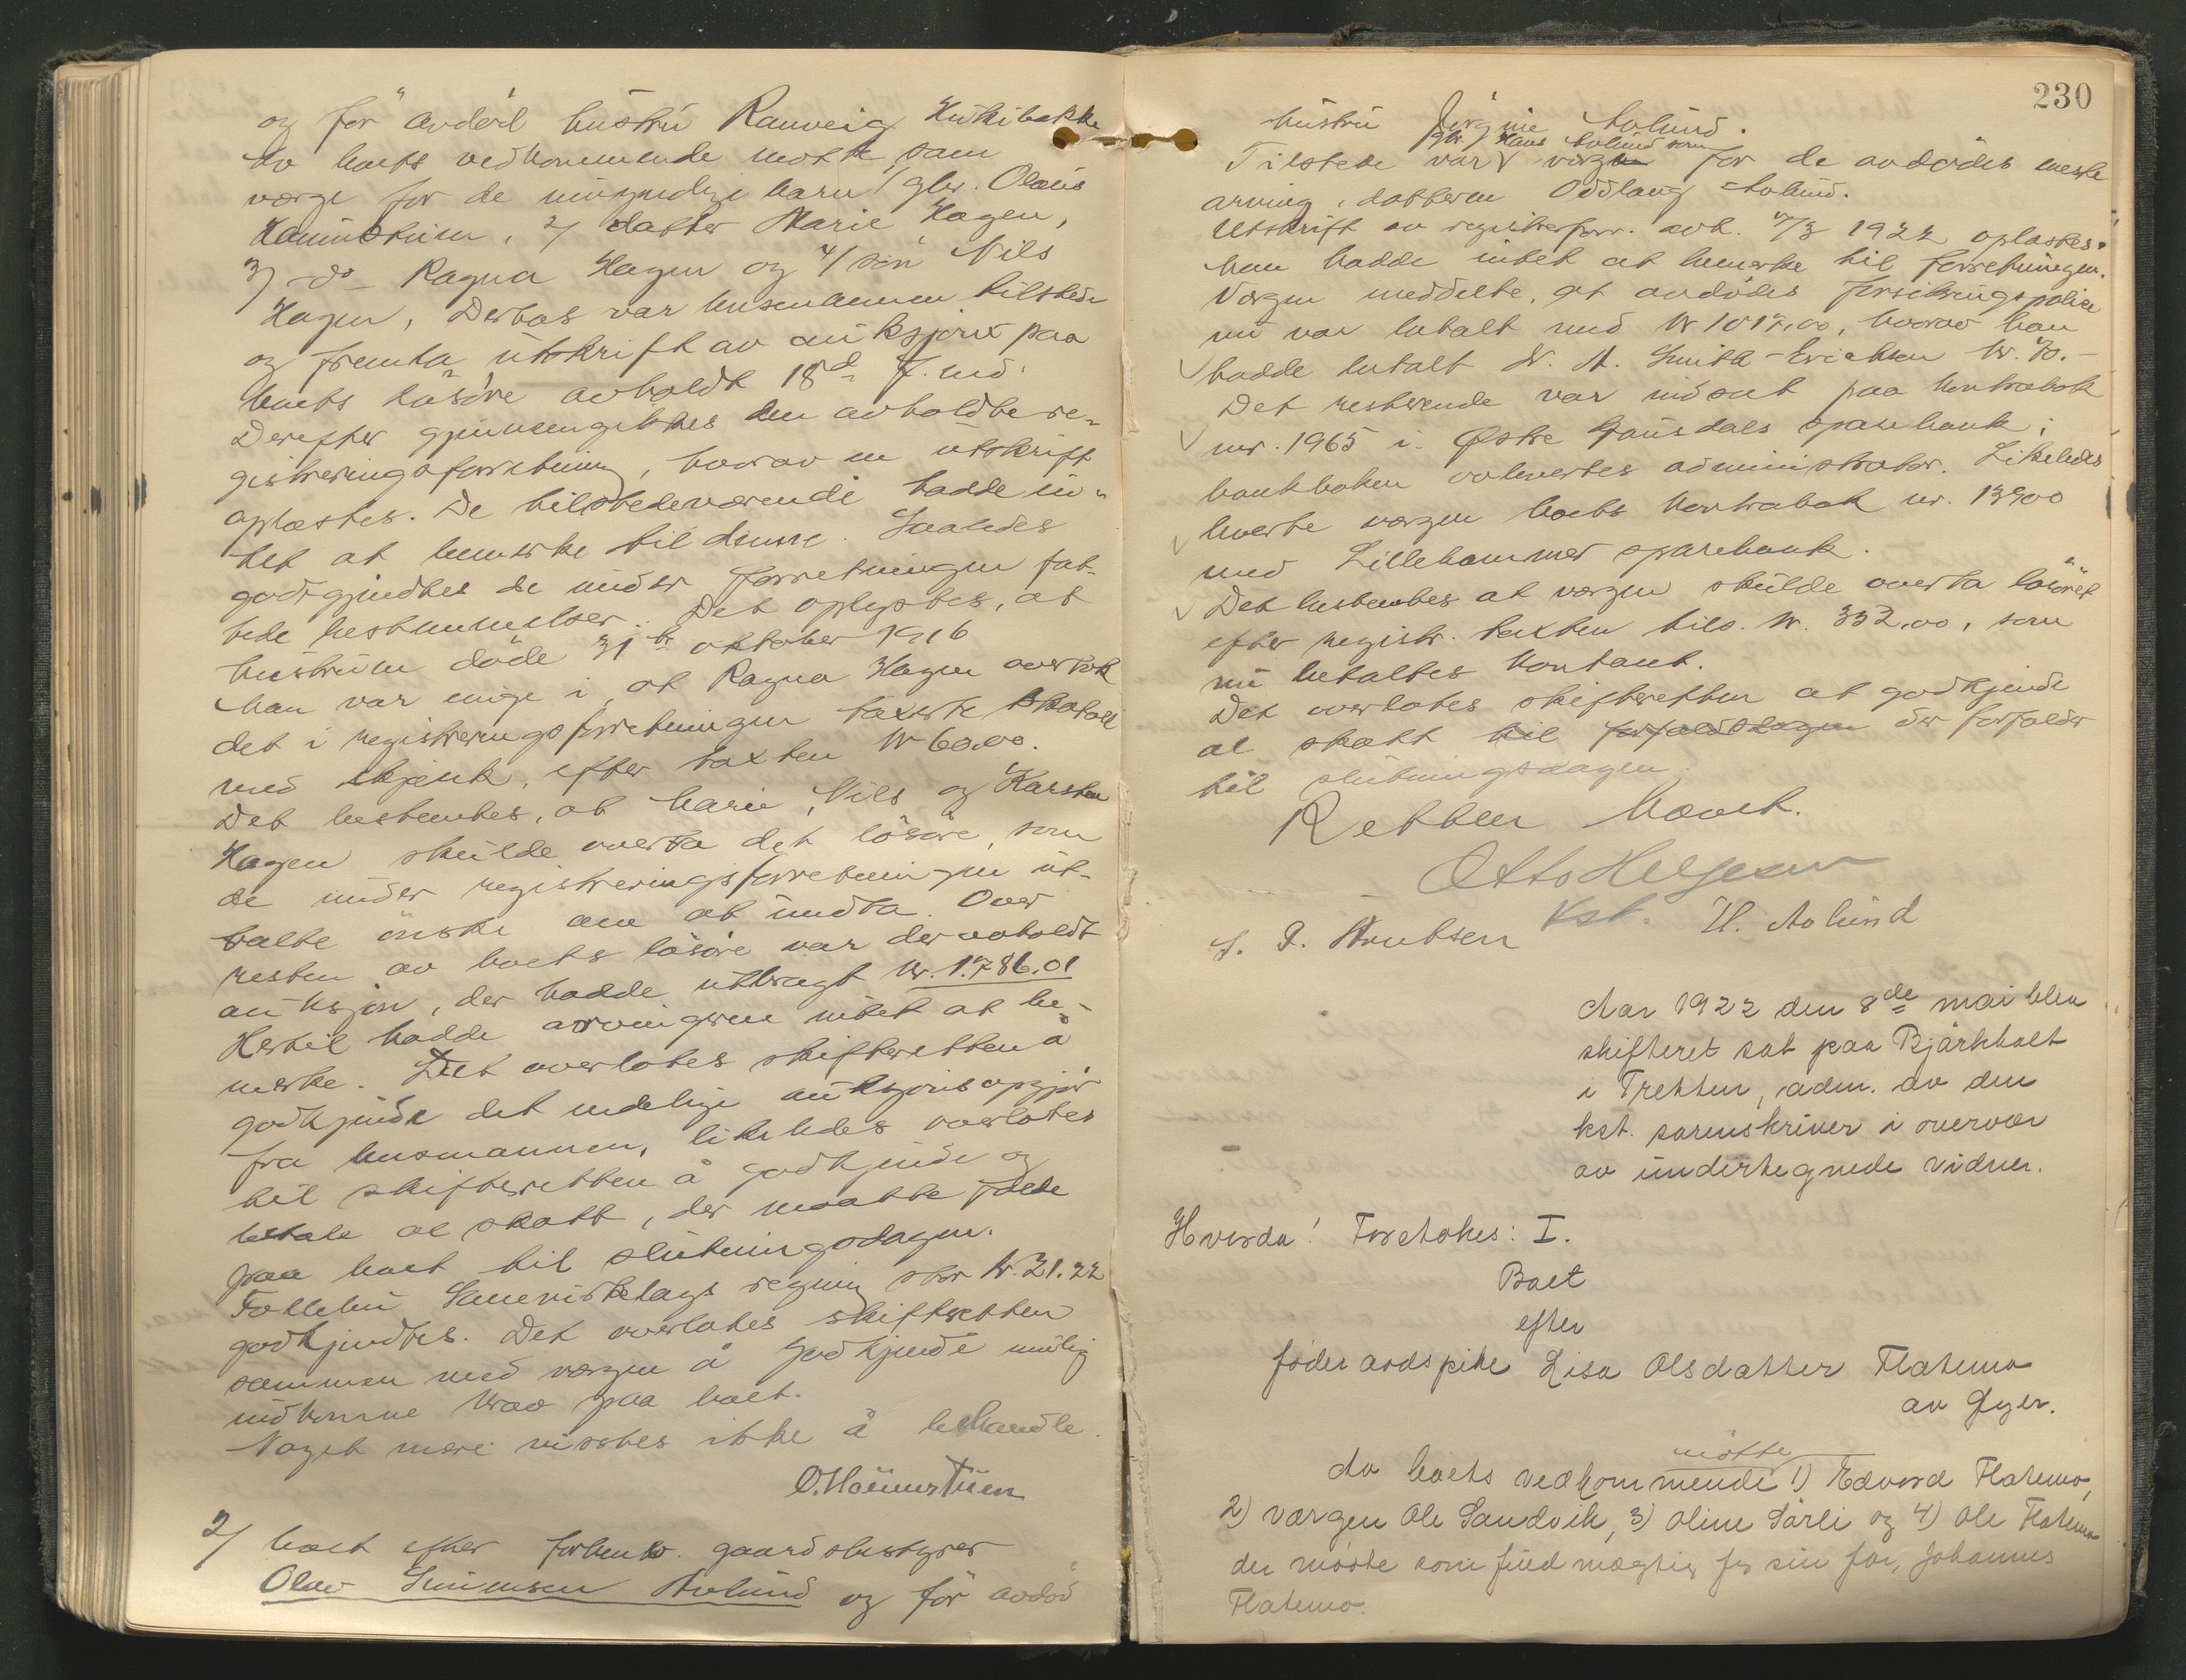 og før avdød hustru Ranveig
Av boets vedkommende møtte som
værge for de umyndige barn 1/ gbr. Olaus
Haunstuen, 2/ datter Marie Hagen,
3/ do Ragna Hagen og 4/ søn Nils
Hagen, Desuten var lensmannen tilstede
og fremla utskrift av auksjon paa
boets løsøre avholdt 18de f. md.
Derefter gjennemgikkes den avholdte re-
gistreringsforretning, hvorav en utskrift
oplæstes. De tilstedeværende hadde in-
tet at bemerke til denne. Saaledes
godkjendtes de under forretningen fat-
tede bestemmelser. Det oplystes, at
hustruen døde 31te oktober 1916
Man var enige i, at Ragna Hagen overtok
det i registreringsforretningen taxerte
med skjenk, efter taxten kr 60.00.
Det bestemtes, at Marie, Nils og Karsten
Hagen skulde overta det løsøre, som
de under registreringsforretningen ut-
talte ønske om at undta. Over
resten av boets løsøre var der avholdt
auksjon, der hadde utbragt kr. 1786.01
Hertil hadde arvingerne intet at be-
merke. Det overlotes skifteretten å
godkjende det endelige auksjonsopgjør
fra lensmannen, likeledes overlotes
til skifteretten å godkjende og
betale al skatt, der maatte falde
paa boet til slutningsdagen.
Follebu Samvirkelags regning stor kr. 21.22
godkjendtes. Det overlotes skifteretten
sammen med værgen å godkjende mulig
indkomne krav paa boet.
Noget mere vistes ikke å behandle.
O. Haunstuen
2/ boet efter forhenv. gaardsbestyrer
Olav Simensen Aolund og før avdød
230
hustru Jørgine Aolund.
gbr. Hans Aolund som
Tilstede var værge for de avdødes eneste
arving, datteren Oddlaug Aolund.
Utskrift av registrerforr. avh. 7/3 1922 oplæstes.
Man hadde intet at bemerke til forretningen.
Værgen meddelte, at avdødes forsikringspolice
nu var betalt med kr 1017.00, hvorav han
hadde betalt Dr. A. Smith-Erichsen kr. 70.-
Det resterende var indsat paa kontrabok
nr. 1965 i Østre Gausdals sparebank;
bankboken overlevertes administrator. Likeledes
leverte værgen boets kontrabok nr. 13900
med Lillehammer sparebank.
Det bestemtes at værgen skulde overta løsøret
efter registr. taxten tils. kr. 332.00, som
nu betaltes kontant.
Det overlotes skifteretten at godkjende
al skatt til forfaldsdagen der forfalder
til slutningsdagen.
Retten hævet.
Otto Helgesen
kst.
H. Aolund
S. P. Knutsen
Aar 1922 den 8de mai blev
skifteret sat paa Bjärkholt
i Tretten, adm. av den
kst. sorenskriver i overvær
av undertegnede vidner.
Hvorda! Foretokes: I.
Boet
efter
føderaadspike Lisa Olsdatter Flatemo
av Øyer.
møtte
Av boets vedkommende 1) Edvard Flatemo,
2) værgen Ole Sandvik, 3) Oline Sørli og 4) Ole Flatemo
der møtte som fuldmægtig for sin far, Johannes
Flatemo.